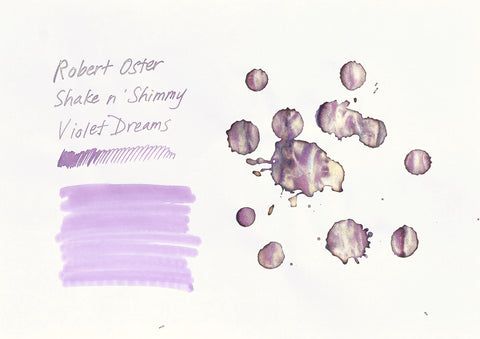 Robert Oster
Shake n' Shimmy
Violet Dreams